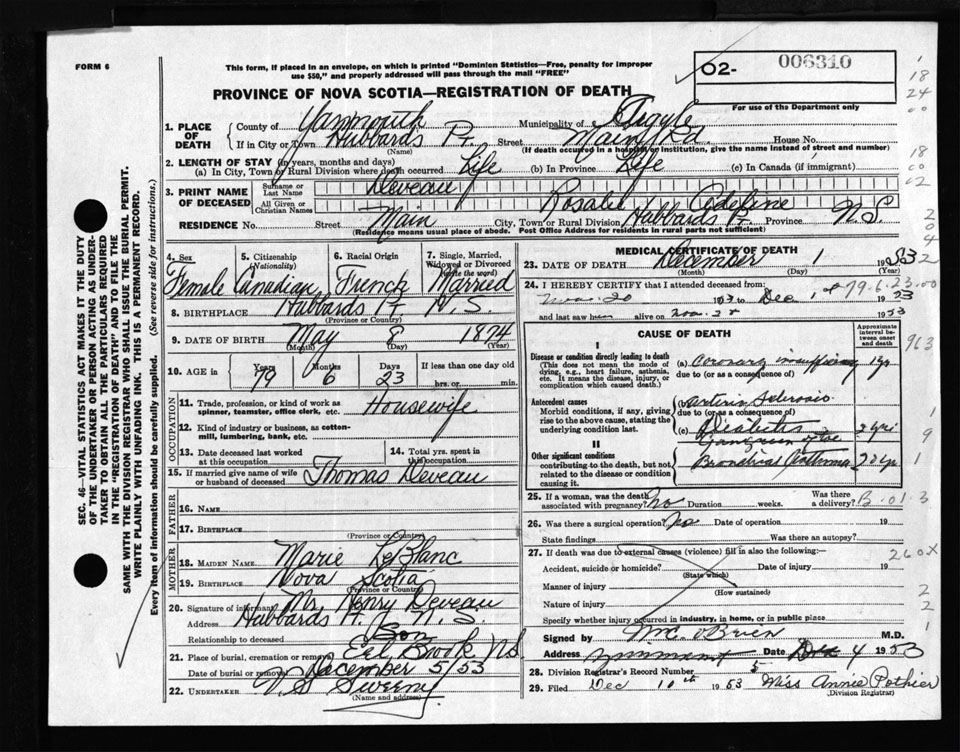 FORM 6
This form, if placed in an envelope, on which is printed "Dominion Statistics—Free, penalty for improper
use $50," and properly addressed will pass through the mail "FREE"
PROVINCE OF NOVA SCOTIA—REGISTRATION OF DEATH
O2- 006310
For use of the Department only
1. PLACE OF DEATH County of Yarmouth Municipality of Argyle
If in City or Town Hubbards Pt. Street Main House No.
(Name) (If death occurred in a hospital or institution, give the name instead of street and number)
2. LENGTH OF STAY (in years, months and days)
(a) In City, Town or Rural Division where death occurred Life (b) In Province Life (c) In Canada (if immigrant)
3. PRINT NAME OF DECEASED Surname or Last Name Deveau
All Given or Christian Names Rosalie Adeline
RESIDENCE No. Street Main City, Town or Rural Division Hubbards Pt. Province N.S.
(Residence means usual place of abode. Post Office Address for residents in rural parts not sufficient)
4. Sex Female
5. Citizenship (Nationality) Canadian
6. Racial Origin French
7. Single, Married, Widowed or Divorced (write the word) Married
8. BIRTHPLACE Hubbards Pt. N.S.
(Province or Country)
9. DATE OF BIRTH May 8 1874
(Month) (Day) (Year)
10. AGE in Years 79 Months 6 Days 23 If less than one day old hrs. or min.
OCCUPATION
11. Trade, profession, or kind of work as spinner, teamster, office clerk, etc. Housewife
12. Kind of industry or business, as cotton-mill, lumbering, bank, etc.
13. Date deceased last worked at this occupation
14. Total yrs. spent in this occupation
15. If married give name of wife or husband of deceased Thomas Deveau
FATHER
16. NAME
17. BIRTHPLACE
(Province or Country)
MOTHER
18. MAIDEN NAME Marie LeBlanc
19. BIRTHPLACE Nova Scotia
(Province or Country)
20. Signature of informant Mr. Henry Deveau
Address Hubbards Pt. N.S.
Relationship to deceased Son
21. Place of burial, cremation or removal Eel Brook N.S.
Date of burial or removal December 5/53
22. UNDERTAKER V.S. Sweeny
(Name and address)
MEDICAL CERTIFICATE OF DEATH
23. DATE OF DEATH December 1 1953
(Month) (Day) (Year)
24. I HEREBY CERTIFY that I attended deceased from:
Nov. 20 1953 to Dec 1953
and last saw h alive on Nov. 28 1953
79-6-23-00
CAUSE OF DEATH
Approximate interval between onset and death
I
Disease or condition directly leading to death
(This does not mean the mode of dying, e.g., heart failure, asthenia, etc. It means the disease, injury, or complication which caused death.)
(a) Coronary insufficiency 1 yr
due to (or as a consequence of)
Antecedent causes
Morbid conditions, if any, giving rise to the above cause, stating the underlying condition last.
Arterio Sclerosis
due to (or as a consequence of)
(c) Diabetes 2 yrs
Gangrene of toe
II
Other significant conditions
contributing to the death, but not related to the disease or condition causing it.
Bronchial Asthma 20 yr
25. If a woman, was the death associated with pregnancy? No Duration weeks. Was there a delivery?
B.01.3
26. Was there a surgical operation? No Date of operation 19
State findings Was there an autopsy?
27. If death was due to external causes (violence) fill in also the following:—
260X
Accident, suicide or homicide? Date of injury 19
(State which)
Manner of injury
(How sustained)
Nature of injury
Specify whether injury occurred in industry, in home, or in public place
Signed by Wm. O'Brien M.D.
Address Date Dec 4 1953
28. Division Registrar's Record Number 5
29. Filed Dec 10th 1953 Miss Annie Pothier
(Division Registrar)
1
18
24
00
18
00
02
2
0
4
32
963
1
9
1
2
2
1
SEC. 46—VITAL STATISTICS ACT MAKES IT THE DUTY
OF THE UNDERTAKER OR PERSON ACTING AS UNDER-
TAKER TO OBTAIN ALL THE PARTICULARS REQUIRED
IN THE "REGISTRATION OF DEATH" AND TO FILE THE
SAME WITH THE DIVISION REGISTRAR WHO SHALL ISSUE THE BURIAL PERMIT.
WRITE PLAINLY WITH UNFADING INK. THIS IS A PERMANENT RECORD.
Every item of information should be carefully supplied. (See reverse side for instructions.)